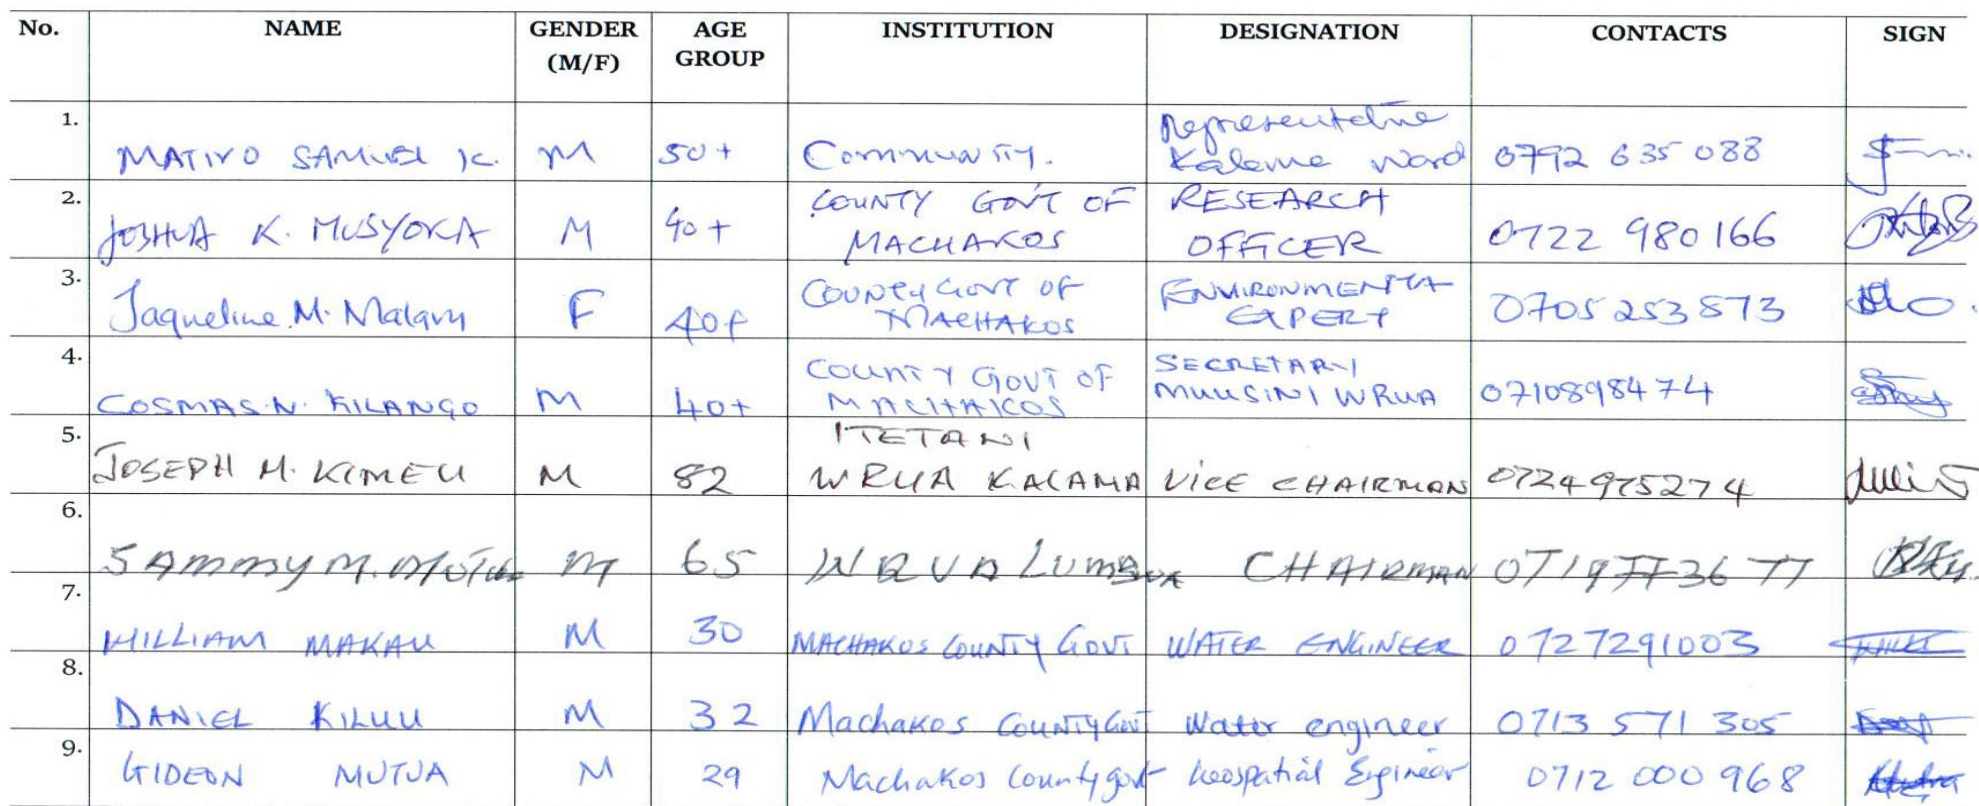 No. NAME GENDER (M/F) AGE GROUP INSTITUTION DESIGNATION CONTACTS SIGN
1. MATIVO SAMUEL K. M 50+ Community. Representative Kalama Ward 0792 635 088
2. JOSHUA K. MUSYOKA M 40+ COUNTY GOVT OF MACHAKOS RESEARCH OFFICER 0722 980 166
3. Jaqueline M. F 40+ COUNTY GOVT OF MACHAKOS ENVIRONMENTA EXPERT 0705 253 873
4. COSMAS N. KILANGO M 40+ COUNTY GOVT OF MACHAKOS SECRETARY MUUSINI WRUA 0710898474
5. JOSEPH M. KIMEU M 82 ITETANI WRUA KALAMA VICE CHAIRMAN 0724975274
6. SAMMY M. M 65 WRUA CHAIRMAN 0719773677
7. WILLIAM MAKAU M 30 MACHAKOS COUNTY GOVT WATER ENGINEER 0727291003
8. DANIEL KILUU M 32 Machakos COUNTY Govt Water engineer 0713 571 305
9. GIDEON MUTUA M 29 Machakos County govt Geospatial Engineer 0712 000 968